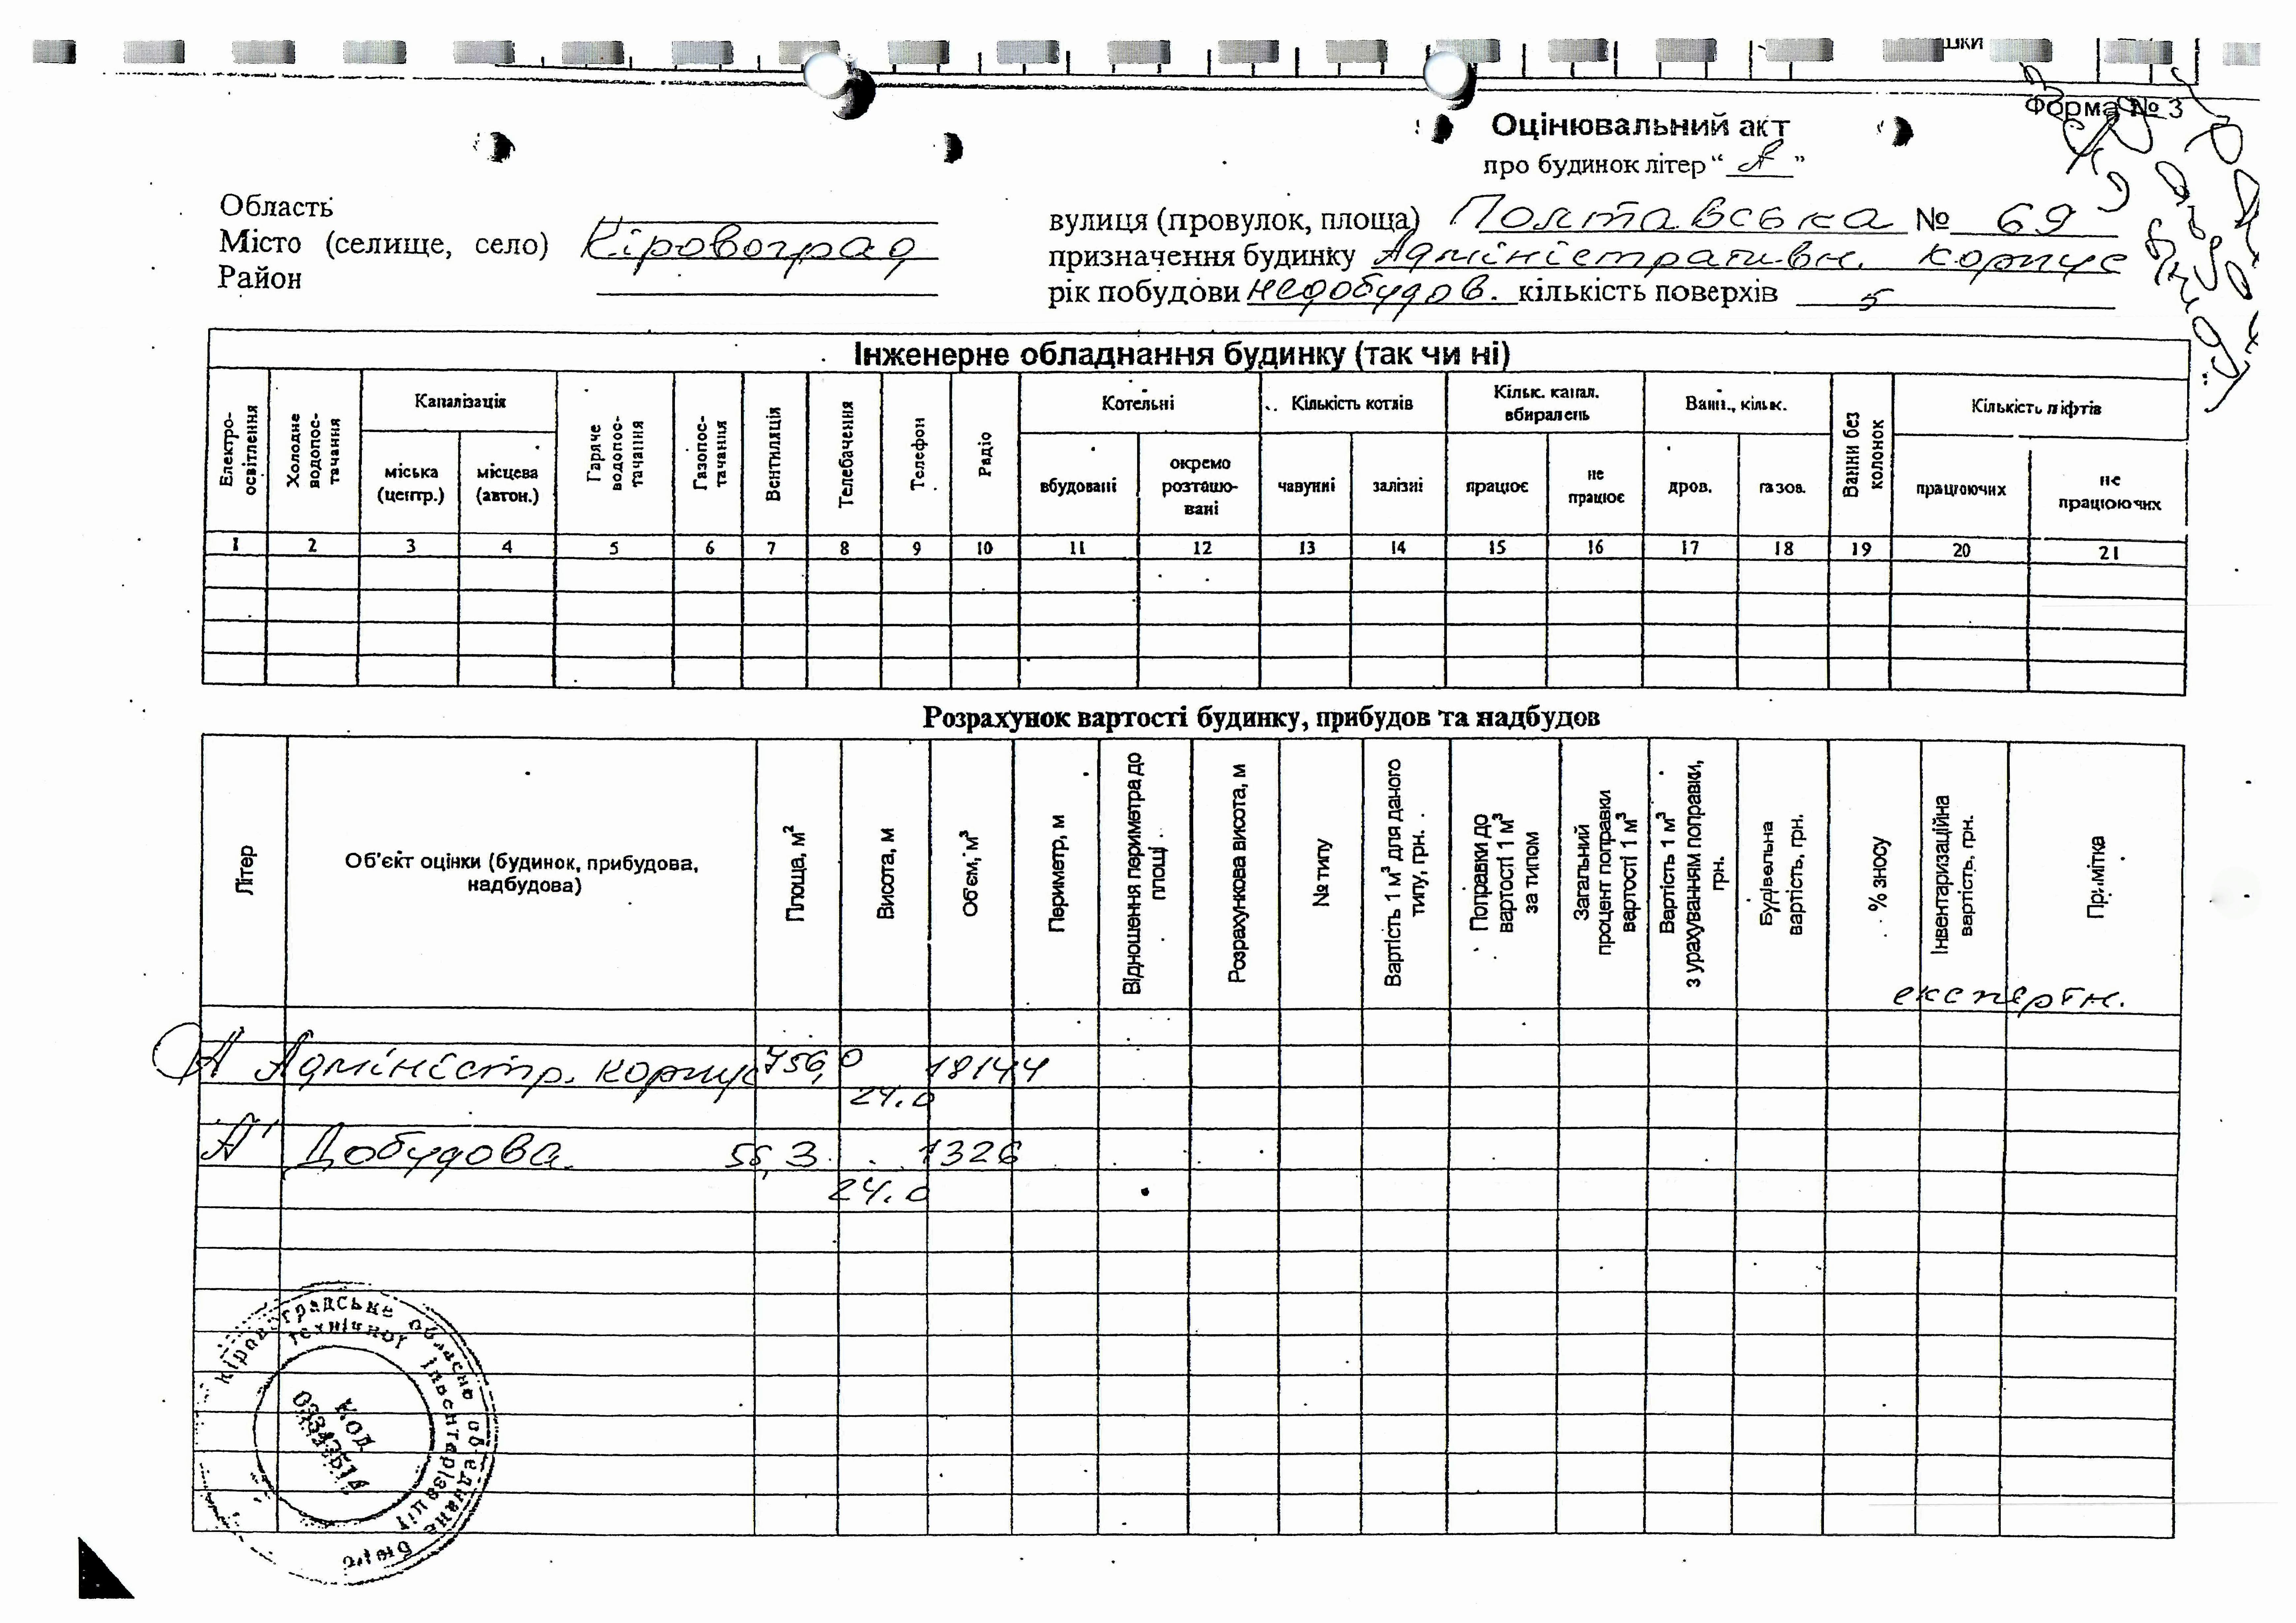 шки
Форма № 3
Оцінювальний акт
про будинок літер “ А ”
Область
Місто (селище, село) Кіровоград
Район
вулиця (провулок, площа) Полтавська № 69
призначення будинку Адміністративн. корпус
рік побудови недобудов. кількість поверхів 5
Інженерне обладнання будинку (так чи ні)
Електро-освітлення
Холодне водопос-тачання
Каналізація
міська (центр.)
місцева (автон.)
Гаряче водопос-тачання
Газопос-тачання
Вентиляція
Телебачення
Телефон
Радіо
Котельні
вбудовані
окремо розташо-вані
Кількість котлів
чавунні
залізні
Кільк. канал. вбиралень
працює
не працює
Ванн., кільк.
дров.
газов.
Ванни без колонок
Кількість ліфтів
працюючих
не працюючих
1 2 3 4 5 6 7 8 9 10 11 12 13 14 15 16 17 18 19 20 21
Розрахунок вартості будинку, прибудов та надбудов
Літер
Об'єкт оцінки (будинок, прибудова, надбудова)
Площа, м²
Висота, м
Об'єм, м³
Периметр, м
Відношення периметра до площі
Розрахункова висота, м
№ типу
Вартість 1 м³ для даного типу, грн.
Поправки до вартості 1 м³ за типом
Загальний процент поправки вартості 1 м³
Вартість 1 м³ з урахуванням поправки, грн.
Будівельна вартість, грн.
% зносу
Інвентаризаційна вартість, грн.
Примітка
експертн.
А Адміністр. корпус 756,0 18144
24.0
А' Добудова 55,3 1326
24.0
Кіровоградське обласне об'єднане бюро
технічної інвентаризації
КОД